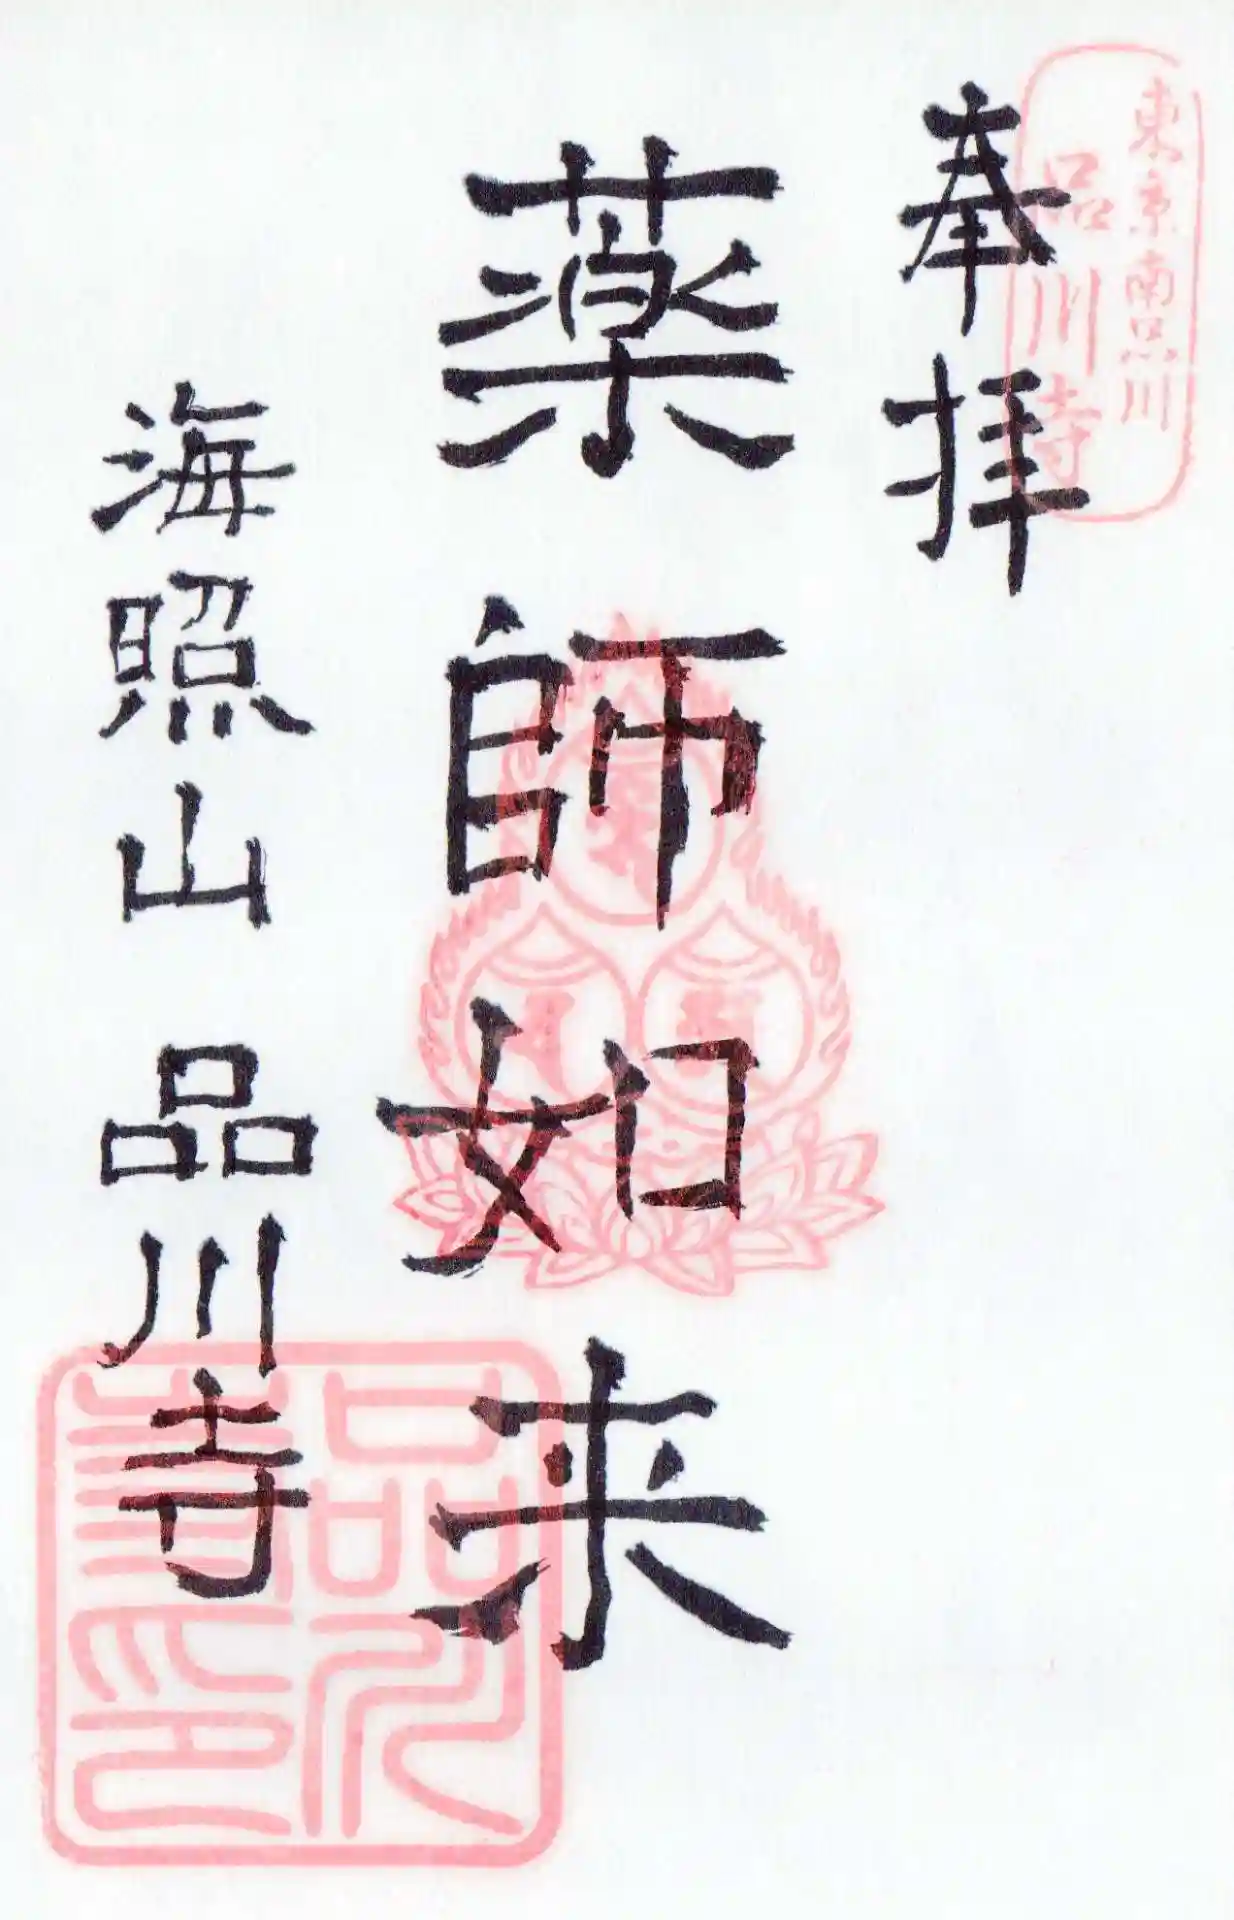 東京南品川
品川寺
奉拝
薬師如来
海照山 品川寺
品川寺印